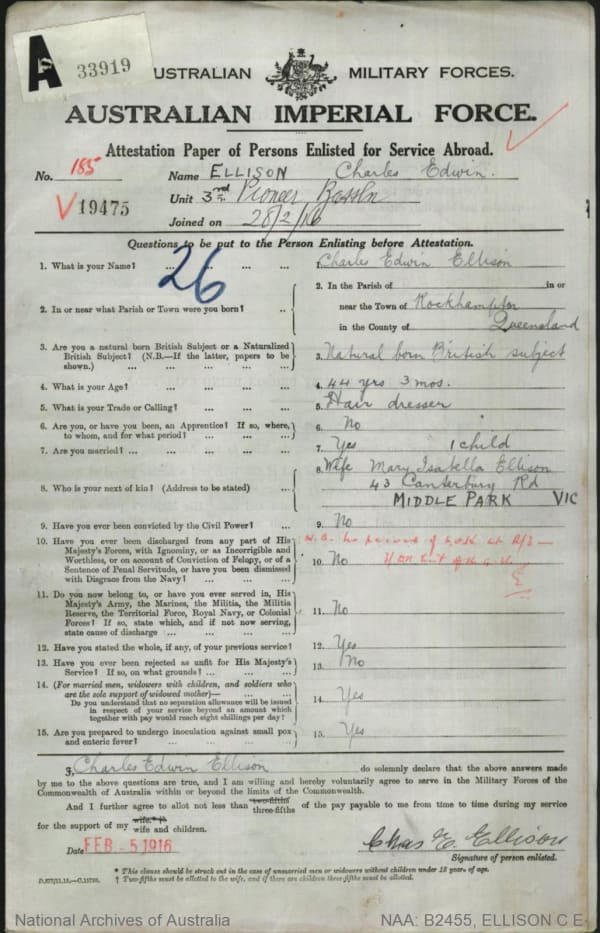 A 33919
AUSTRALIAN MILITARY FORCES.
AUSTRALIAN IMPERIAL FORCE.
Attestation Paper of Persons Enlisted for Service Abroad.
No. 185 Name ELLISON Charles Edwin.
19475 Unit 3rd Pioneer Battln
Joined on 28/2/16
Questions to be put to the Person Enlisting before Attestation.
26
1. What is your Name? ... ... ... 1. Charles Edwin Ellison
2. In or near what Parish or Town were you born? .. 2. In the Parish of in or
near the Town of Rockhampton
in the County of Queensland
3. Are you a natural born British Subject or a Naturalized
British Subject? (N.B.—If the latter, papers to be
shown.) ... ... ... ... ... 3. Natural born British subject
4. What is your Age? ... ... ... 4. 44 yrs 3 mos.
5. What is your Trade or Calling? ... ... ... 5. Hair dresser
6. Are you, or have you been, an Apprentice? If so, where,
to whom, and for what period? ... ... ... 6. No
7. Are you married? ... ... ... ... 7. Yes 1 child
8. Who is your next of kin? (Address to be stated) ... 8. Wife Mary Isabella Ellison
43 Canterbury Rd
MIDDLE PARK VIC
9. Have you ever been convicted by the Civil Power? ... 9. No
10. Have you ever been discharged from any part of His
Majesty's Forces, with Ignominy, or as Incorrigible and
Worthless, or on account of Conviction of Felony, or of a
Sentence of Penal Servitude, or have you been dismissed
with Disgrace from the Navy? ... ... ... 10. No
11. Do you now belong to, or have you ever served in, His
Majesty's Army, the Marines, the Militia, the Militia
Reserve, the Territorial Force, Royal Navy, or Colonial
Forces? If so, state which, and if not now serving,
state cause of discharge ... ... ... ... 11. No
12. Have you stated the whole, if any, of your previous service? 12. Yes
13. Have you ever been rejected as unfit for His Majesty's
Service? If so, on what grounds? ... ... ... 13. No
14. (For married men, widowers with children, and soldiers who
are the sole support of widowed mother)—
Do you understand that no separation allowance will be issued
in respect of your service beyond an amount which
together with pay would reach eight shillings per day? 14. Yes
15. Are you prepared to undergo inoculation against small pox
and enteric fever? ... ... ... ... 15. Yes
I, Charles Edwin Ellison do solemnly declare that the above answers made
by me to the above questions are true, and I am willing and hereby voluntarily agree to serve in the Military Forces of the
Commonwealth of Australia within or beyond the limits of the Commonwealth.
And I further agree to allot not less than two-fifths three-fifths of the pay payable to me from time to time during my service
for the support of my wife.*† wife and children.
Date FEB -5 1916 Chas E. Ellison
Signature of person enlisted.
* This clause should be struck out in the case of unmarried men or widowers without children under 18 years of age.
† Two-fifths must be allotted to the wife, and if there are children three-fifths must be allotted.
National Archives of Australia NAA: B2455, ELLISON C E